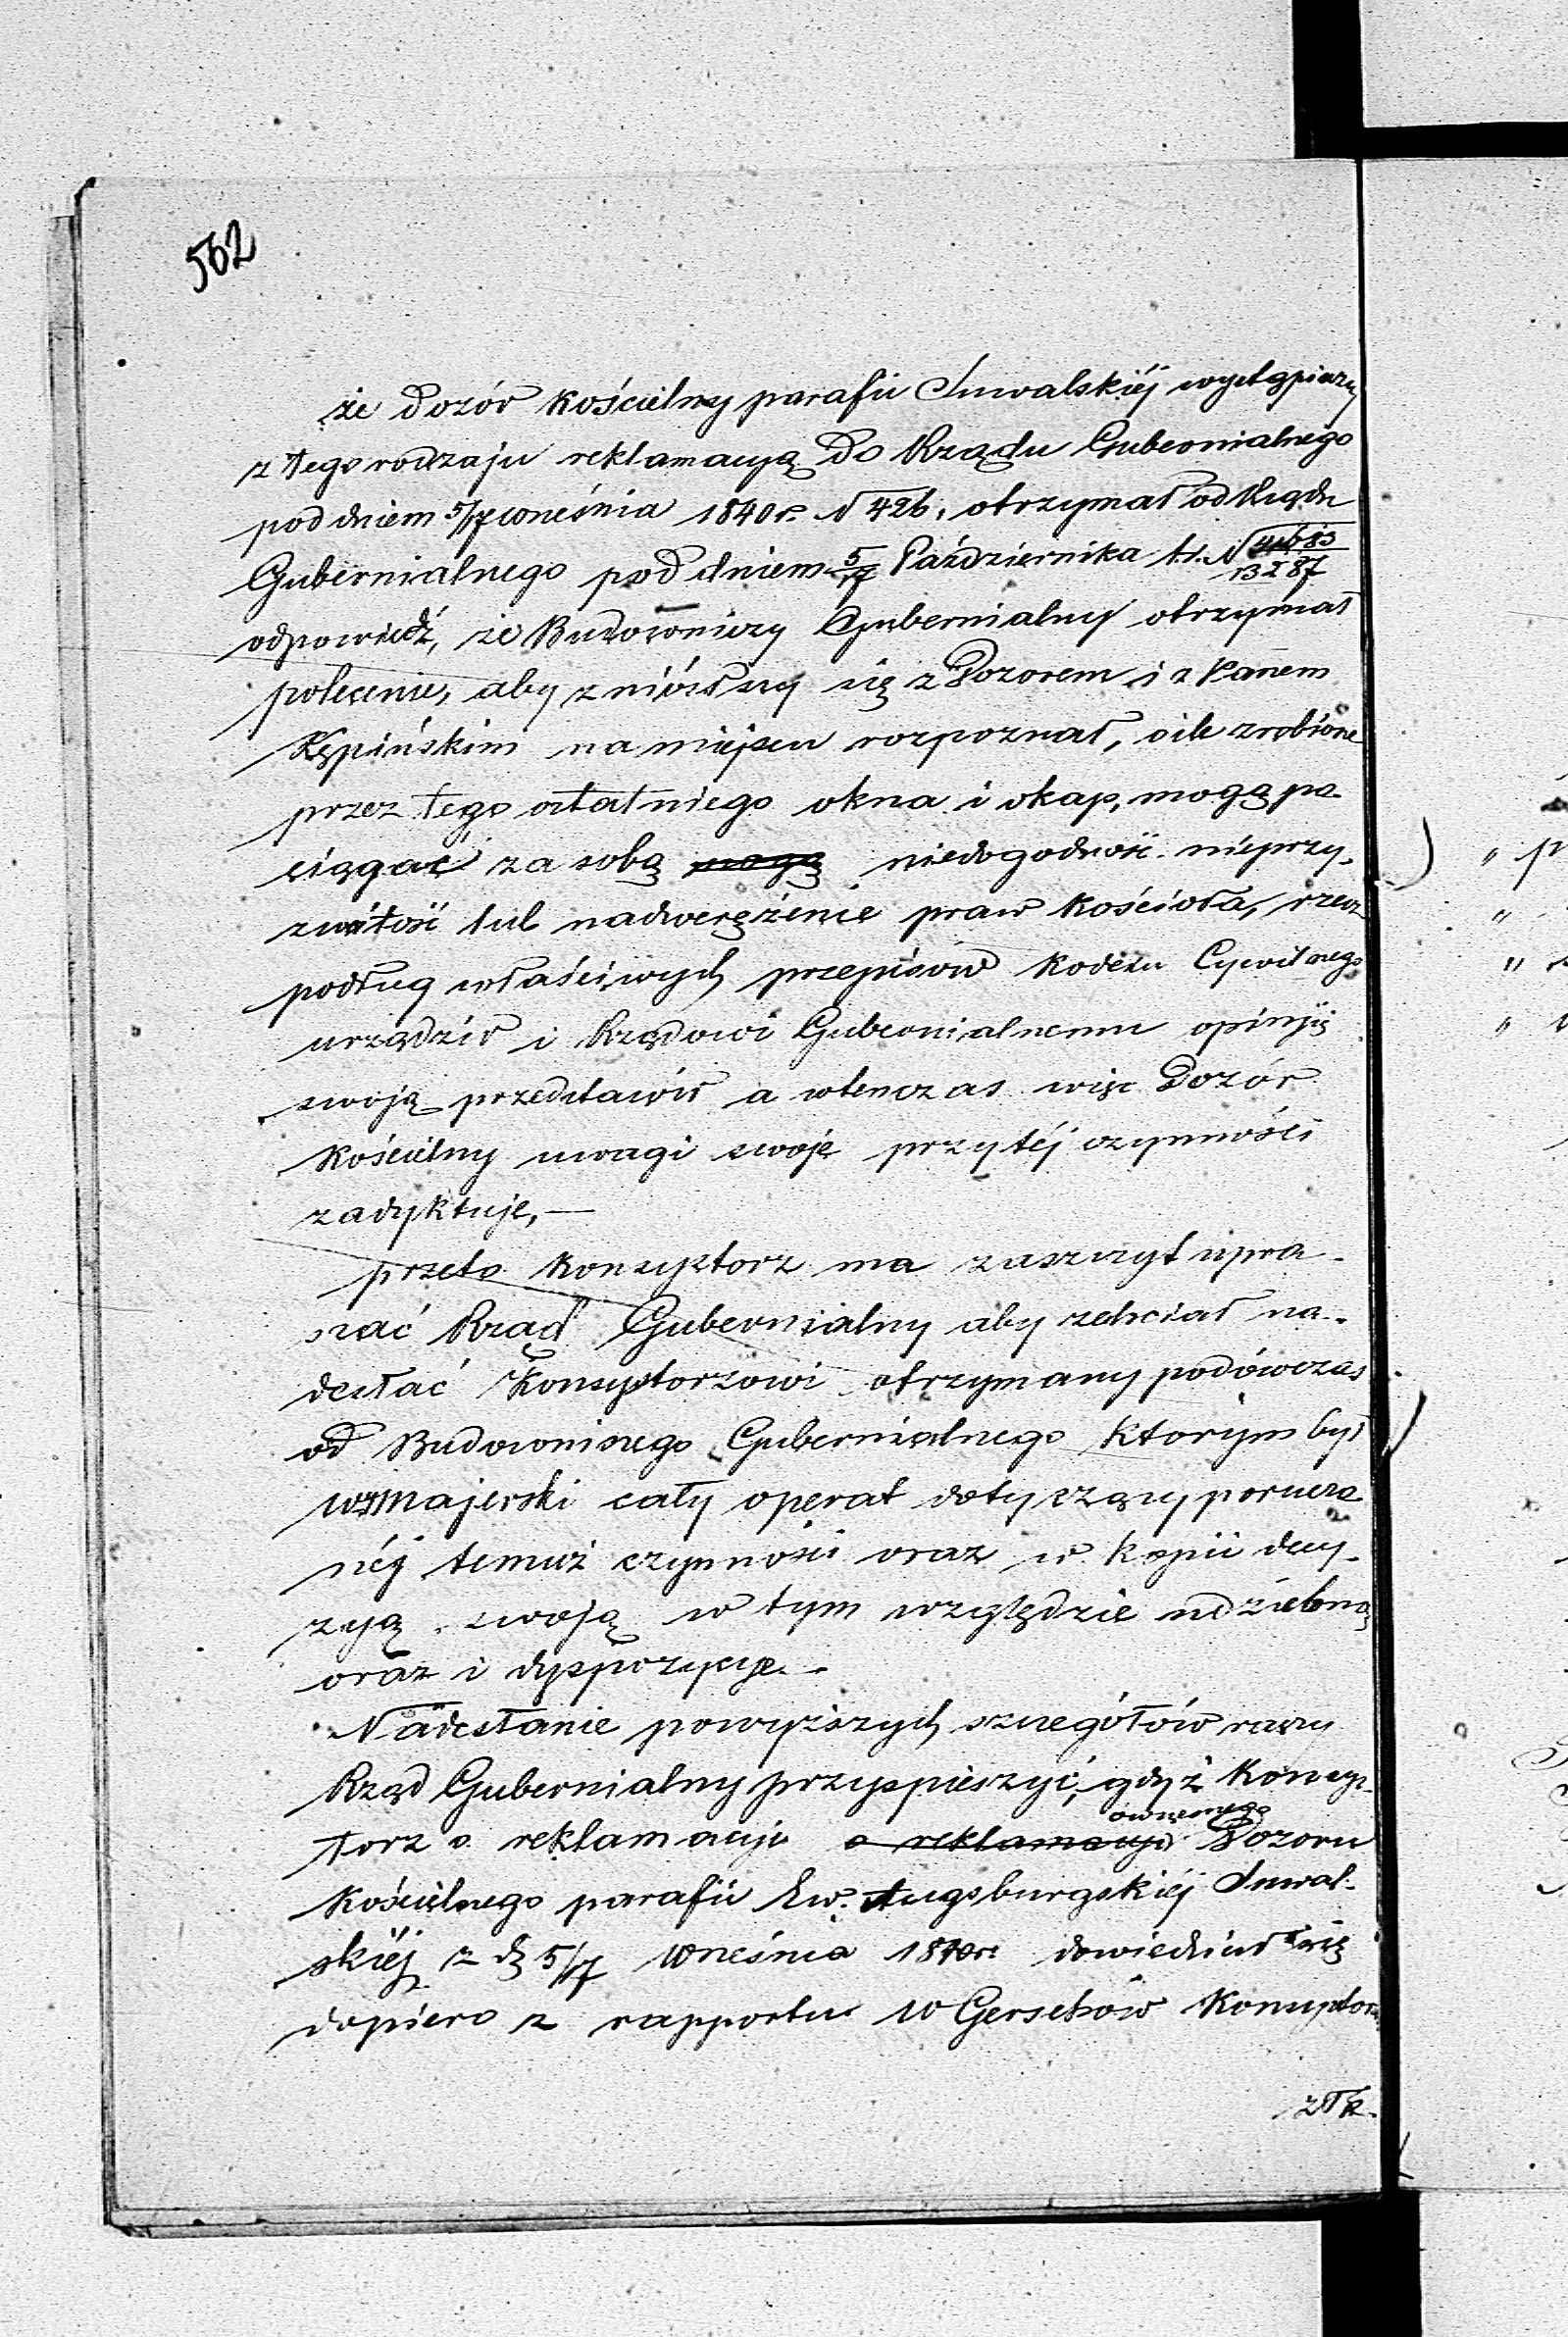 562
że Dozór Kościelny parafii Suwalskiéj wystąpiwszy
z tego rodzaju reklamacyą do Rządu Gubernialnego
pod dniem 5/17 Września 1840 r. N 426, otrzymał od Rządu
Gubernialnego pod dniem 5/17 Października t.r. N
odpowiedź, że Budowniczy Gubernialny otrzymał
polecenie, aby zniósłszy się z Dozorem i z Panem
Kępińskim na miejscu rozpoznał, o ile zrobione
przez tego ostatniego okna i okap, mogą po-
ciągać za sobą mogą niedogodność nieprzy-
zwoitość lub nadwerężenie praw Kościoła, rzecz
podług właściwych przepisów Kodexu Cywilnego
urządził i Rządowi Gubernialnemu opinję
swoją przedstawił a wtenczas więc Dozór
Kościelny uwagi swoje przy téj czynności
zadyktuje, —
przeto Konsystorz ma zaszczyt upra-
szać Rząd Gubernialny aby zechciał na-
desłać Konsystorzowi otrzymany podówczas
od Budowniczego Gubernialnego Ktorym był
Majerski cały operat dotyczący porucza
néj temuż czynności oraz w kopii decy-
zyą swoją w tym względzie udzielną
oraz i dyspozycye. -
Nadesłanie powyższych szczegółów raczy
Rząd Gubernialny przyspieszyć, gdyż Konsys-
torz o reklamacyi o reklamacyi ówczesnego Dozoru
Kościelnego parafii Ew. Augsburgskiéj Suwal-
skiéj z d. 5/17 Września 1840 r. dowiedział się
dopiero z rapportu W Gerschów Konsystorz